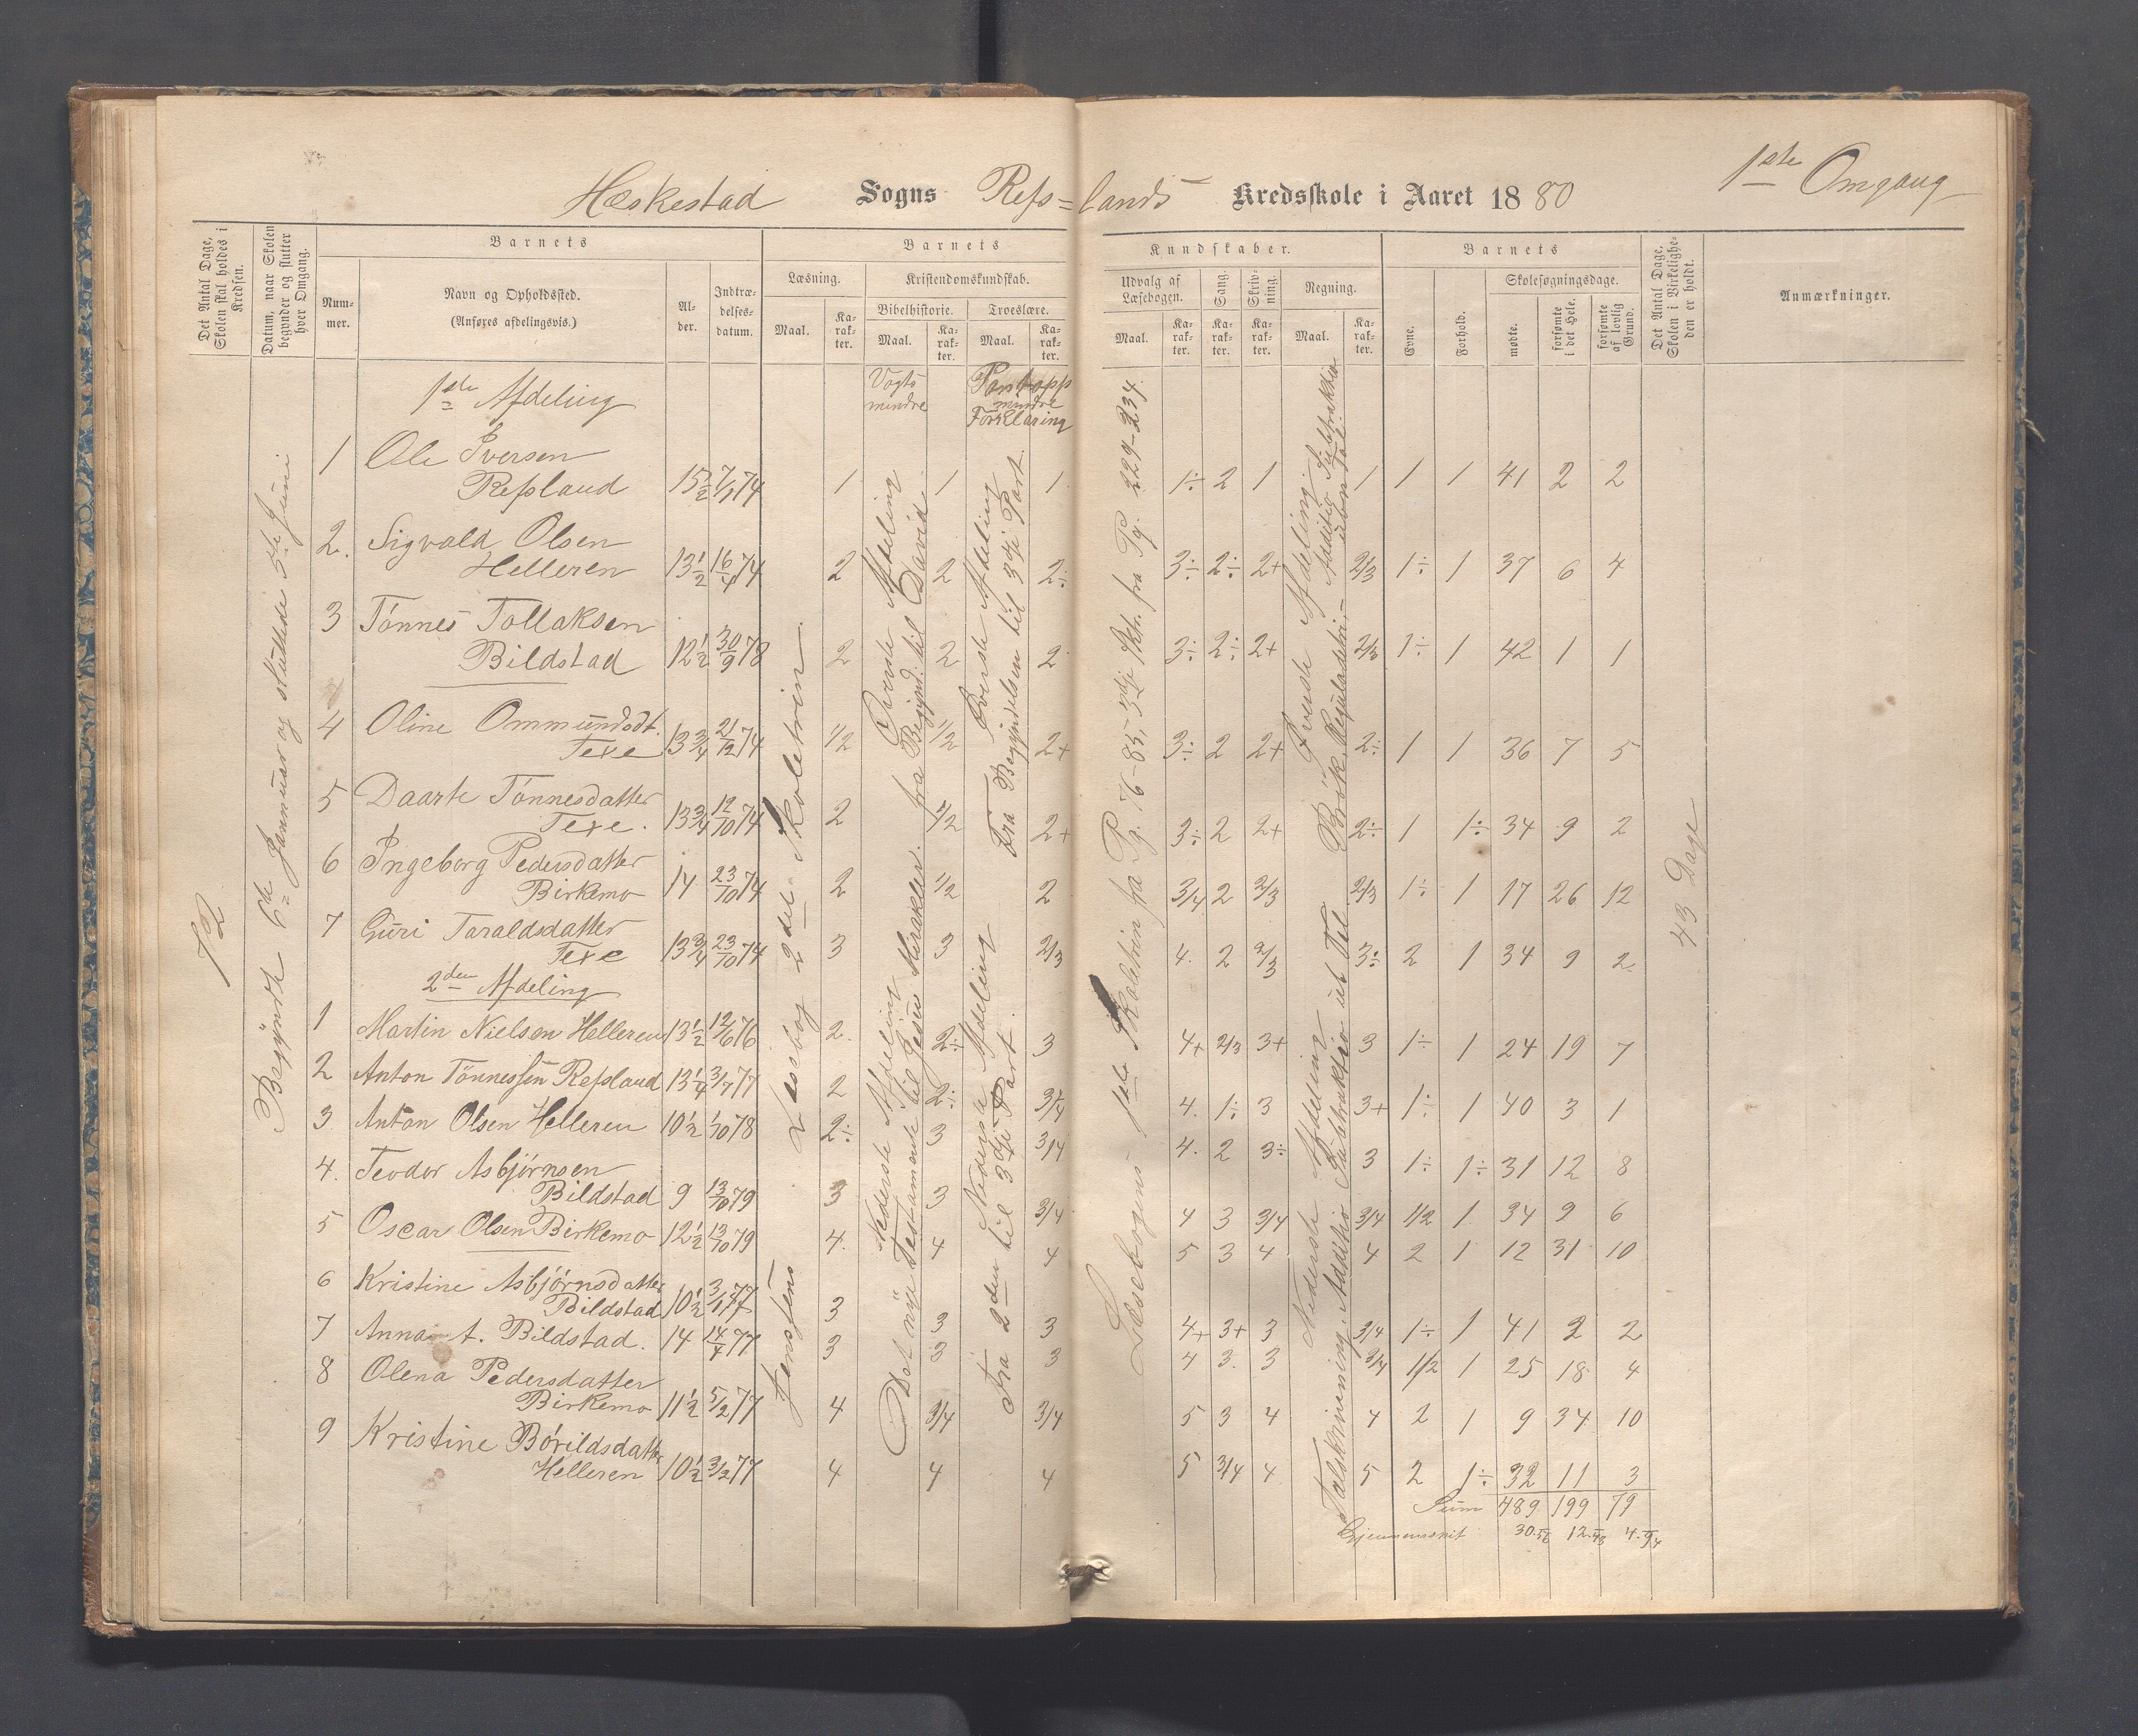 Heskestad Sogns Refs=lands Kredsskole i Aaret 1880 1ste Omgang
Det Antal Dage, Skolen skal holdes i Kredsen.
Datum, naar Skolen begynder og slutter hver Omgang.
Barnets
Nummer.
Navn og Opholdssted.
(Anføres afdelingsvis.)
Alder.
Indtrædelsesdatum.
Barnets Kundskaber.
Læsning.
Maal.
Karakter.
Kristendomskundskab.
Bibelhistorie.
Maal.
Karakter.
Troeslære.
Maal.
Karakter.
Udvalg af Læsebogen.
Maal.
Karakter.
Sang.
Karakter.
Skrivning.
Karakter.
Regning.
Maal.
Karakter.
Barnets
Evne.
Forhold.
Skolesøgningsdage.
mødte.
forsømte i det Hele.
forsømte af lovlig Grund.
Det Antal Dage, Skolen i Virkeligheden er holdt.
Anmærkninger.
72
Begyndte 6te Januar og sluttede 5te Juni
Jensens Læsebog 2den Skoletrin
Vogts mindre
Øverste Afdeling
fra Begynd. til David
Nederste Afdeling
Det nye Testamente til Jesu Mirakler.
Pontopp mindre Forklaring
Øverste Afdeling
Fra Begyndelsen til 3die Part.
Nederste Afdeling
Fra 2den til 3die Part.
Læsebogens 1ste Skoletrin fra Pg. 76-85, 3die Sktr. fra Pg. 229-234.
Øverste Afdeling
Nederste Afdeling
Talskrivning, Addition Subtraktion
43 Dage
1ste Afdeling
1 Ole Iversen
Refsland 15½ 7/1 74 1 1 1 1÷ 2 1 1 1 1 41 2 2
2. Sigvald Olsen
Helleren 13½ 16/4 74 2 2 2÷ 3÷ 2÷ 2+ 2/3 1÷ 1 37 6 4
3 Tønnes Tollaksen
Bildstad 12½ 30/9 78 2 2 2 3÷ 2÷ 2+ 2/3 1÷ 1 42 1 1
4 Oline Ommundsdt.
Texe 13¾ 21/12 74 1/2 1/2 2+ 3÷ 2 2+ 2÷ 1 1 36 7 5
5 Daarte Tønnesdatter
Texe. 13¾ 12/10 74 2 1/2 2+ 3÷ 2 2+ 2÷ 1 1÷ 34 9 2
6 Ingeborg Pedersdatter
Birkemo 14 23/10 74 2 1/2 2 3/4 2 2/3 2/3 1÷ 1 17 26 12
7 Guri Taraldsdatter
Texe 13¾ 23/10 74 3 3 2/3 4. 2 2/3 3÷ 2 1 34 9 2
2den Afdeling
1 Martin Nielsen Helleren 13½ 12/6 76 2. 2÷ 3 4+ 2/3 3+ 3 1÷ 1 24 19 7
2 Anton Tönnessen Refsland 13¼ 3/7 77 2 2÷ 3/4 4. 1÷ 3 3+ 1÷ 1 40 3 1
3 Anton Olsen Helleren 10½ 1/10 78 2÷ 3 3/4 4. 2 3÷ 3 1÷ 1÷ 31 12 8
4. Teodor Asbjørnsen
Bildstad 9 13/10 79 3 3 3/4 4 3 3/4 3/4 1/2 1 34 9 6
5 Oscar Olsen Birkemo 12½ 13/10 79 4. 4 4 5 3 4 4 2 1 12 31 10
6 Kristine Asbjørnsdatter
Bildstad 10½ 3/1 77 3 3 3 4+ 3+ 3 3/4 1÷ 1 41 2 2
7 Anna A. Bildstad. 14 14/4 77 3 3 3 4 3. 3 3/4 1/2 1 25 18 4
8 Olena Pedersdatter
Birkemo 11½ 5/2 77 4 3/4 3/4 5 3 4 4 2 1 9 34 10
9 Kristine Bórildsdatter
Helleren 10½ 3/2 77 4 4 4 5 3/4 4 5 2 1÷ 32 11 3
Sum 489 199 79
Gjennemsnit 30.56 12.43 4.94